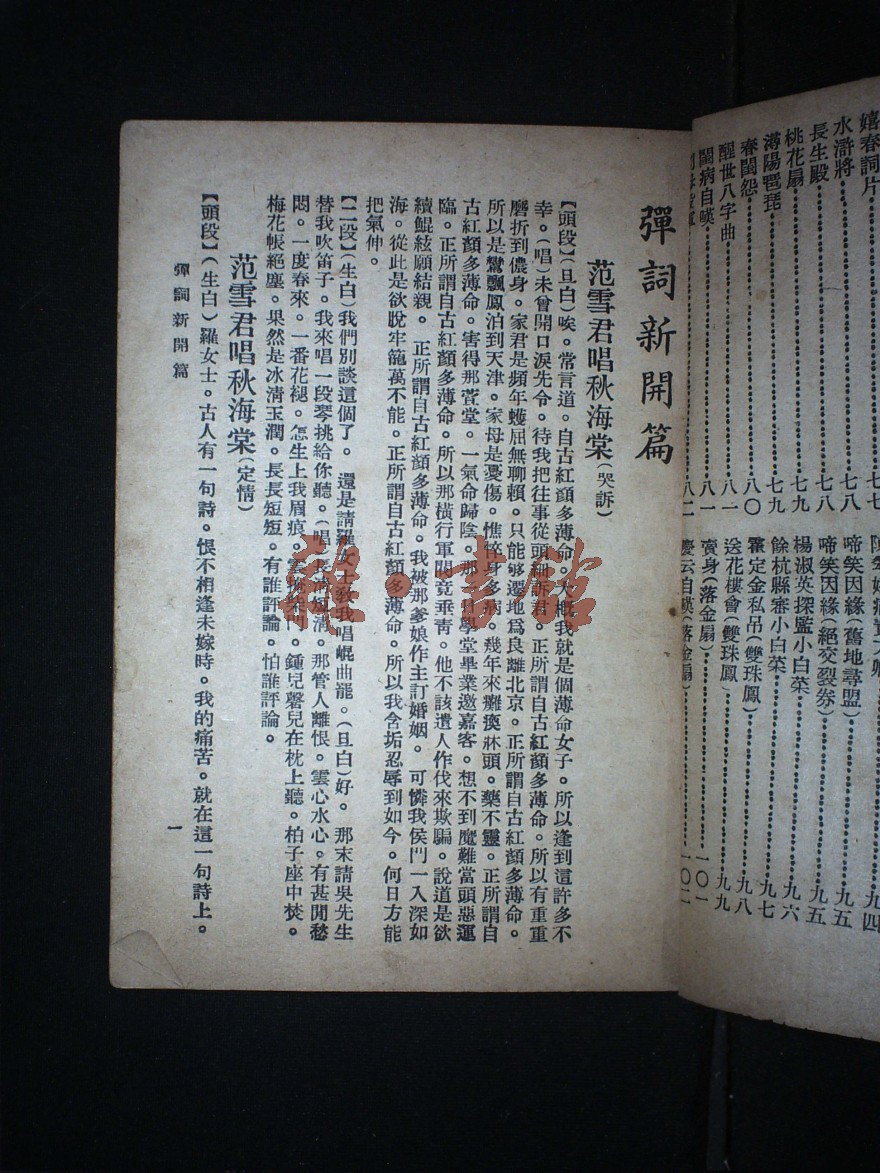 嬉春詞片 七七
水滸將 七八
長生殿 七八
桃花扇 七九
潯陽琵琶 七九
春閨怨 八〇
醒世八字曲 八一
闺病自嘆 八一
八二
九四
啼笑因緣(舊地尋盟) 九五
啼笑因緣(絕交裂券) 九五
楊淑英探監小白菜 九六
餘杭縣審小白菜 九七
霍定金私吊(雙珠鳳) 九八
送花樓會(雙珠鳳) 九九
賣身(落金扇) 一〇一
慶云自嘆(落金扇) 一〇二
彈詞新開篇
范雪君唱秋海棠(哭訴)
【頭段】(旦白)唉。常言道。自古紅顏多薄命。大概我就是個薄命女子。所以逢到這許多不
幸。(唱)未曾開口淚先令。待我把往事從頭細訴君。正所謂自古紅顏多薄命。所以有重重
磨折到儂身。家君是頻年蠖屈無聊賴。只能够遷地為良離北京。正所謂自古紅顏多薄命。
所以是鸞飄鳳泊到天津。家母是憂傷。憔悴身多病。幾年來癱瘓牀頭。藥不靈。正所謂自
古紅顏多薄命。害得那萱堂。一氣命歸陰。那一日學堂畢業邀嘉客。想不到魔難當頭惡運
臨。正所謂自古紅顏多薄命。所以那橫行軍閥竟垂青。他不該遣人作伐來欺騙。說道是欲
續鯤絃願結親。正所謂自古紅顏多薄命。我被那爹娘作主訂婚姻。可憐我侯門一入深如
海。從此是欲脫牢籠萬不能。正所謂自古紅顏多薄命。所以我含垢忍辱到如今。何日方能
把氣伸。
【二段】(生白)我們別談這個了。還是請羅女士教我唱崐曲罷。(旦白)好。那末請吳先生
替我吹笛子。我來唱一段琴挑給你聽。(唱)長清短清。那管人離恨。雲心水心。有甚閒愁
悶。一度春來。一番花褪。怎生上我眉痕。雲掩柴門。鍾兒磬兒在枕上聽。柏子座中焚。
梅花帳絕塵。果然是冰清玉潤。長長短短。有誰評論。怕誰評論。
范雪君唱秋海棠(定情)
【頭段】(生白)羅女士。古人有一句詩。恨不相逢未嫁時。我的痛苦。就在這一句詩上。
彈詞新開篇
一
雜·書館